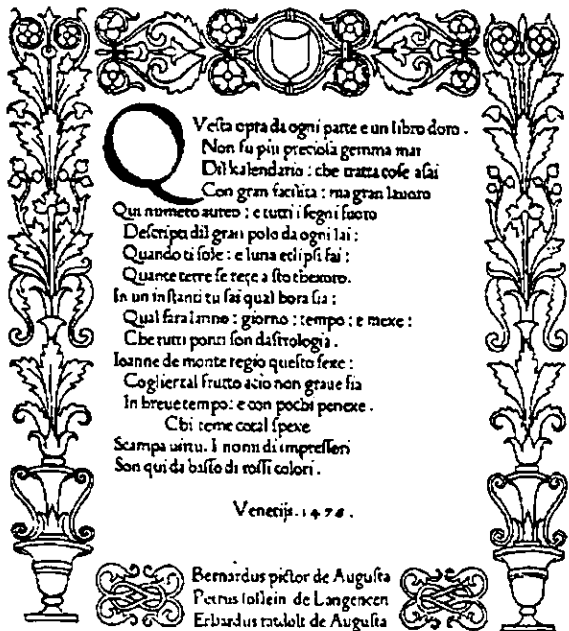 QVeſta opra da ogni parte e un libro doro.
Non fu piu precioſa gemma mai
Dil kalendario: che tratta coſe aſai
Con gran facilita: ma gran lauoro
Qui numero aureo: e tutti i ſegni fuoro
Deſcripti dil gran polo da ogni lai:
Quando ti ſole: e luna eclipſi fai:
Quante terre ſe rege a ſto thexoro.
In un inſtanti tu ſai qual hora ſia:
Qual ſara lanno: giorno: tempo: e mexe:
Che tutti ponti ſon daſtrologia.
Ioanne de monte regio queſto fexe:
Coglier tal frutto acio non graue ſia
In breue tempo: e con pochi penexe.
Chi teme cotal ſpexe
Scampa uirtu. I nomi di impreſſori
Son qui da baſſo di roſſi colori.
Venetijs. 1476.
Bernardus pictor de Auguſta
Petrus loſlein de Langencen
Erhardus ratdolt de Auguſta